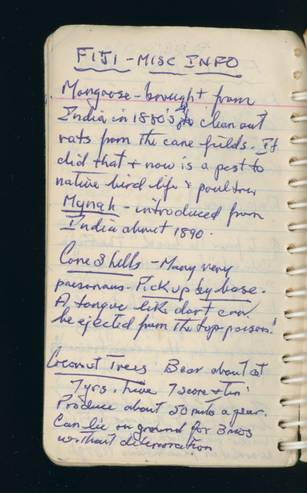 FIJI - MISC INFO
Mongoose - brought from
India in 1880's to clean out
rats from the cane fields. It
did that + now is a pest to
native bird life & poultry
Mynah - introduced from
India about 1890.
Cone Shells - Many very
poisonous - Pick up by base.
A tongue like dart can
be ejected from the top - poison!
Coconut Trees Bear about at
7 yrs. Live 7 score + ten
Produce about 50 nuts a year.
Can lie on ground for 3 mos
without deterioration